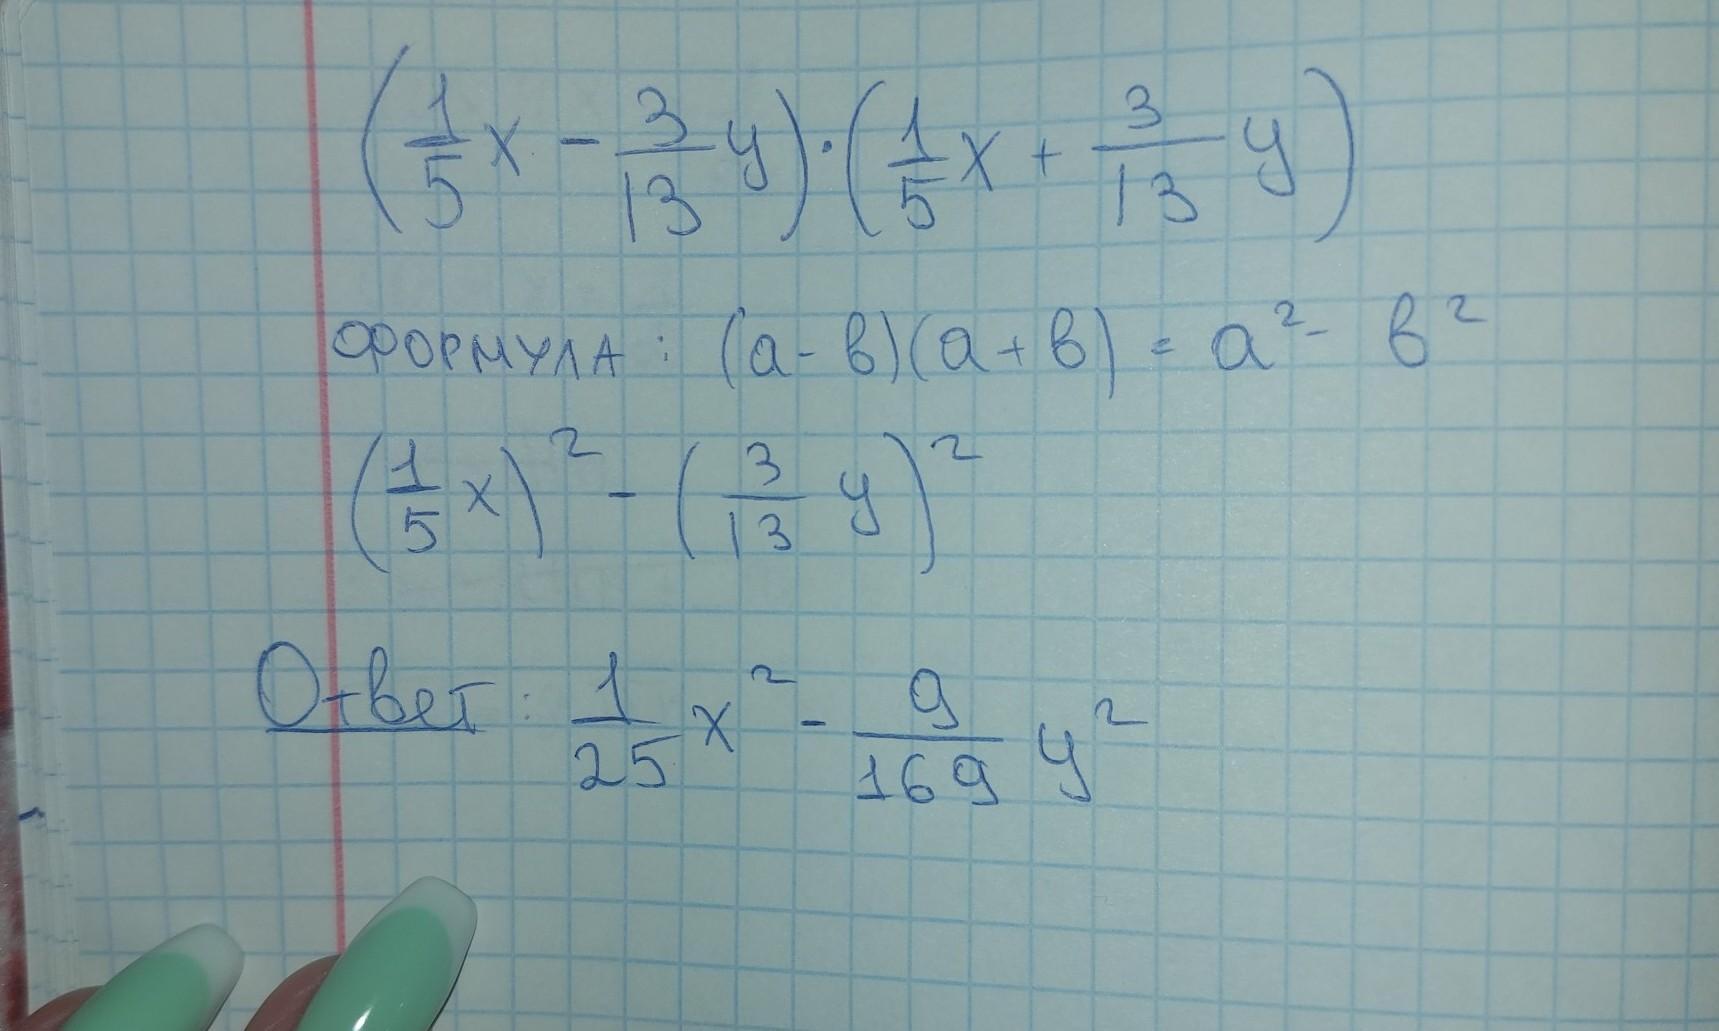 (1/5 x - 3/13 y) · (1/5 x + 3/13 y)
ФОРМУЛА : (a - в)(a + в) = a² - в²
(1/5 x)² - (3/13 y)²
Ответ : 1/25 x² - 9/169 y²